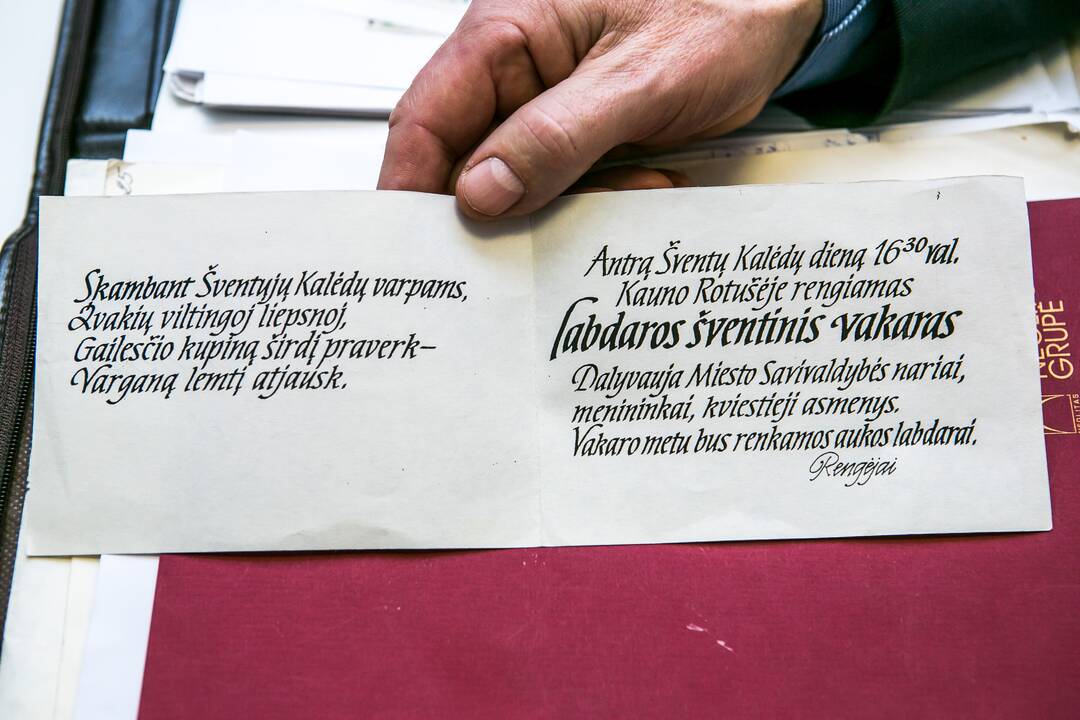 Skambant Šventųjų Kalėdų varpams,
Žvakių viltingoj liepsnoj,
Gailesčio kupiną širdį praverk–
Varganą lemtį atjausk.
Antrą Šventų Kalėdų dieną 16³⁰ val.
Kauno Rotušėje rengiamas
labdaros šventinis vakaras
Dalyvauja Miesto Savivaldybės nariai,
menininkai, kviestieji asmenys.
Vakaro metu bus renkamos aukos labdarai.
Rengėjai
GRUPĖ